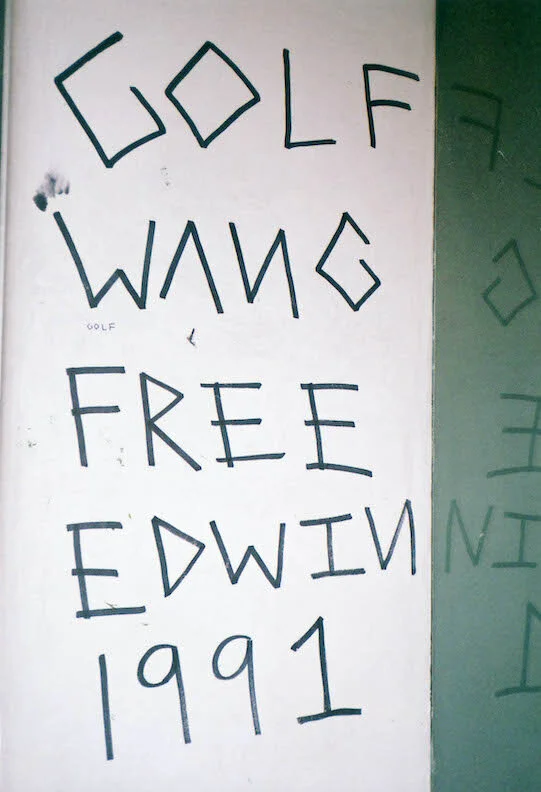 GOLF
WANG
GOLF
FREE
EDWIN
1991